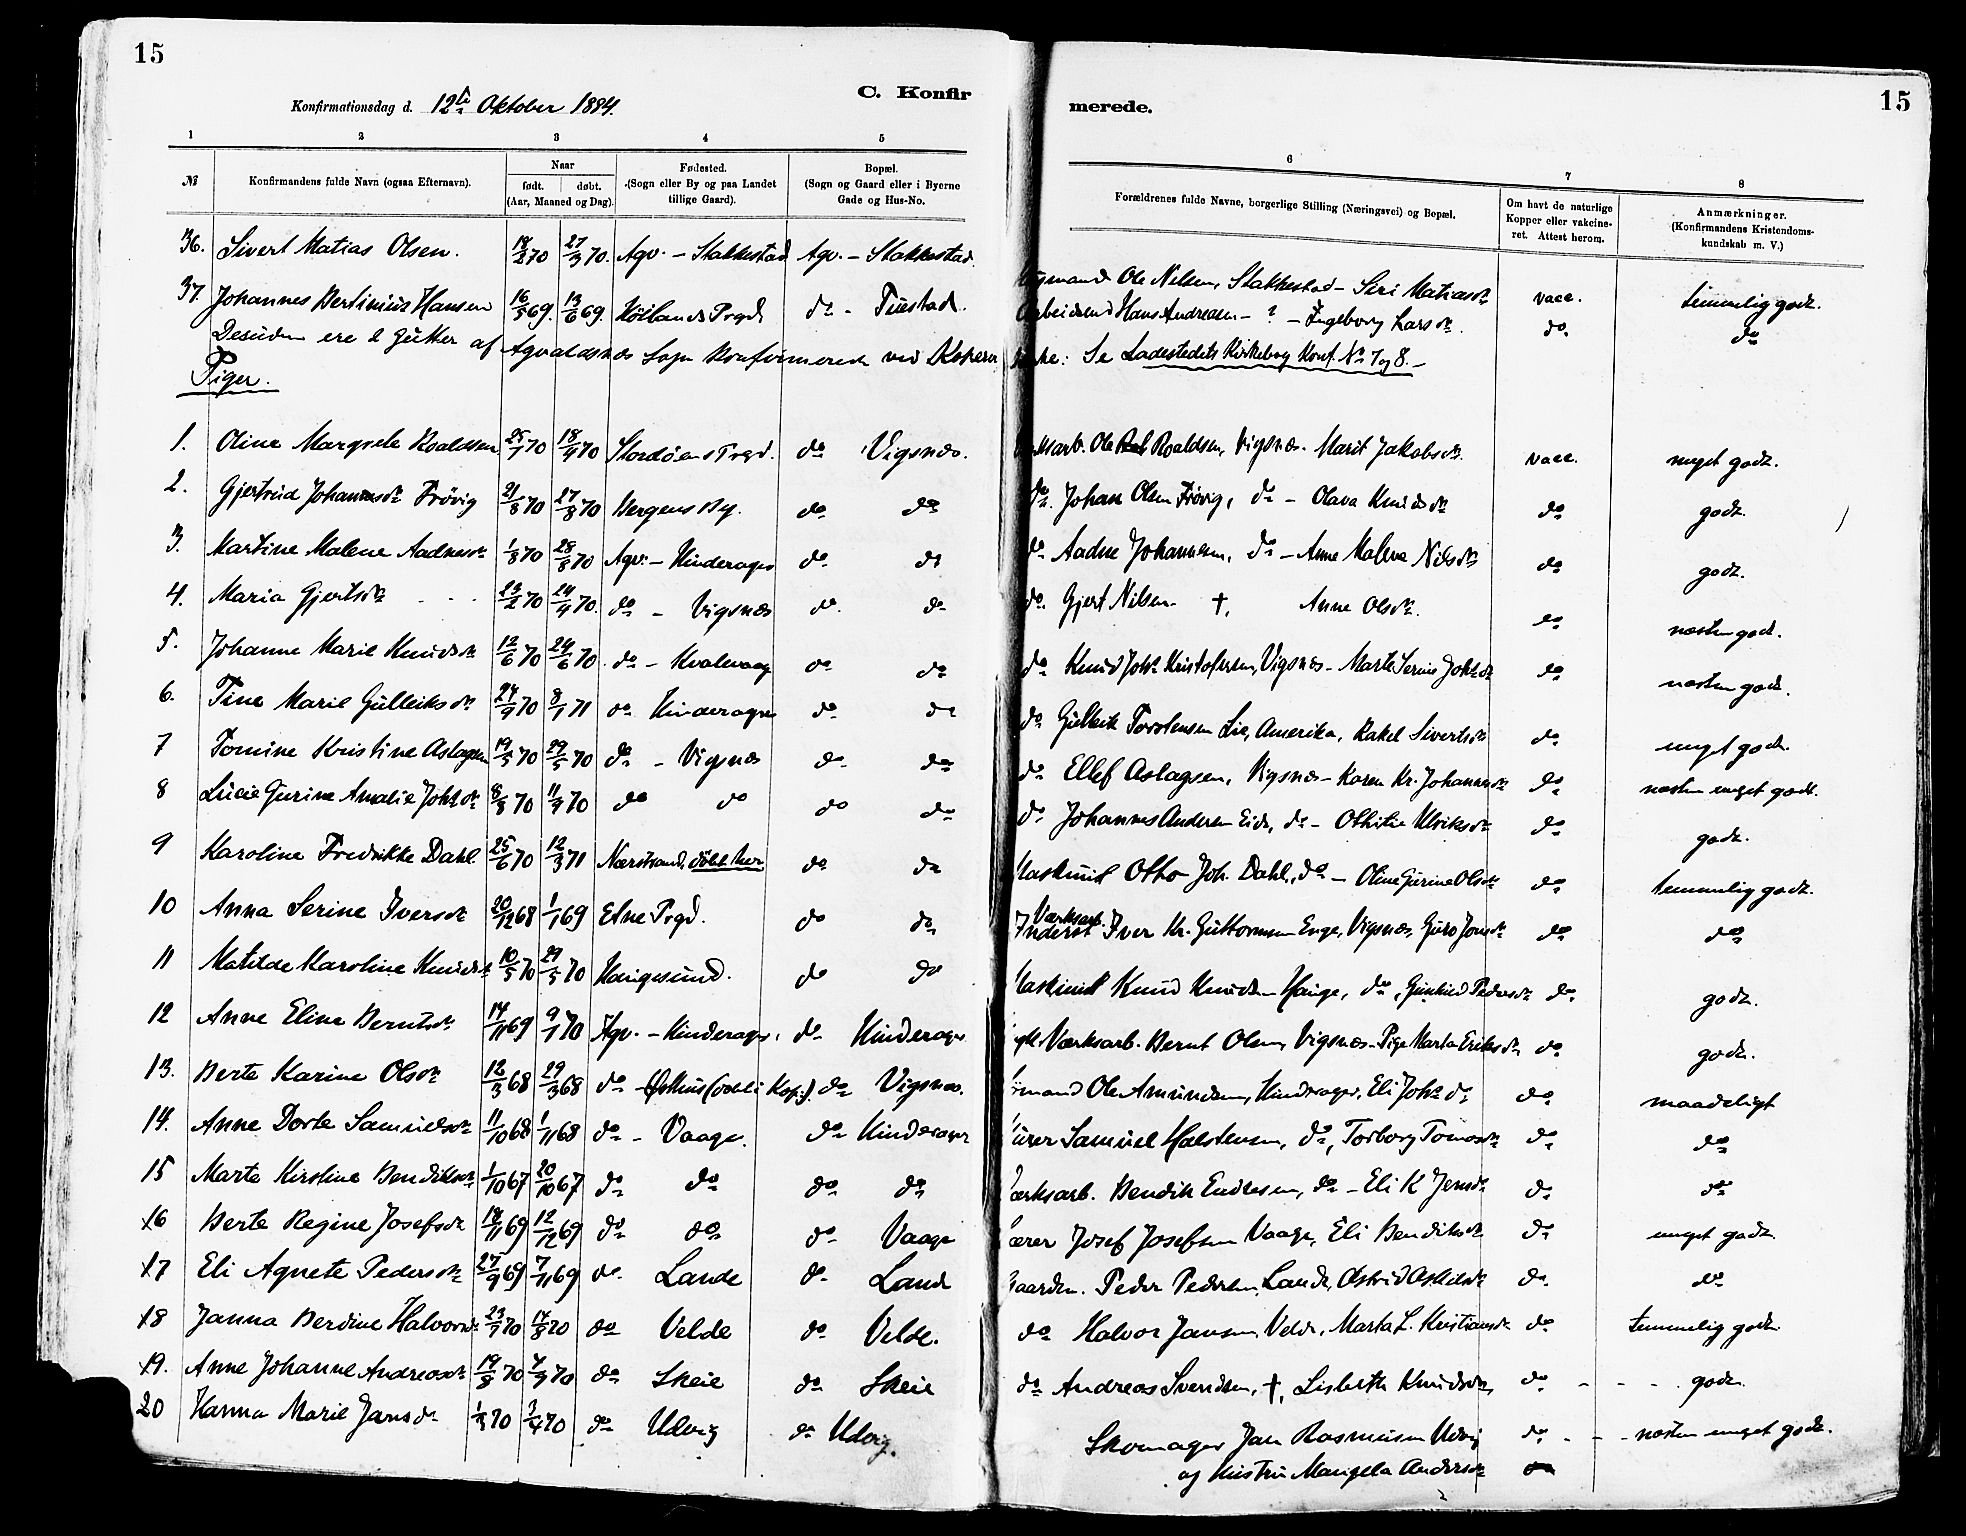 15
Konfirmationsdag d. 12te Oktober 1884.
C. Konfir
merede.
15
1 2 3 4 5 6 7 8
№
Konfirmandens fulde Navn (ogsaa Efternavn).
Naar
født. døbt.
(Aar, Maaned og Dag).
Fødested.
(Sogn eller By og paa Landet
tillige Gaard).
Bopæl.
(Sogn og Gaard eller i Byerne
Gade og Hus-No.
Forældrenes fulde Navne, borgerlige Stilling (Næringsvei) og Bopæl.
Om havt de naturlige
Kopper eller vakcine-
ret. Attest herom.
Anmærkninger.
(Konfirmandens Kristendoms-
kundskab m. V.)
36. Sivert Matias Olsen. 18/2 70 27/3 70. Agv. - Stakkestad Agv. - Stakkestad. Ole Nilsen, Stakkestad - Siri Matiasdr vacc. temmelig godt.
37. Johannes Bertinius Hansen 16/5 69. 13/6 69. Høilands Prgd. do - Tuestad. Hans Andreasen - ? - Ingeborg Larsdr. do. do
Desuden ere 2 Gutter af Agvaldsnes Sogn konfirmerede ved Kopervi Kirke: Se Ladestedets Kirkebog Konf. No 7 og 8. -
Piger.
1. Oline Margrete Roaldsen 25/1 70 18/4 70 Stordøens Prgd. do Vigsnæs. Ole Roaldsen, Vigsnæs. Marit Jakobsdr. vacc. meget godt.
2. Gjertrud Johannesdr Frøvig 21/8 70 27/8 70 Bergens By. do do do. Johan Olsen Frøvig, do - Olava Knudsdr do godt.
3. Martine Malene Aadnesdr 1/8 70 28/8 70 Agv. - Hinderages do. do do Aadne Johannesen, do - Anne Malene Nilsdr do godt.
4. Maria Gjertsdr - - - 23/2 70 24/4 70. do - Vigsnæs do. do do. Gjert Nilsen †, Anne Olsdr. do næsten godt.
5. Johanne Marie Knudsdr 12/6 70 24/6 70. do - Kvalevaag do do. do Knud Johs Kristofersen, Vigsnæs - Marte Serine Johsdr do næsten godt.
6. Tine Marie Gulleiksdr 24/9 70 8/1 71 do Hinderages do do do Gulleik Torstensen Lie, Amerika, Rakel Sivertsdr do meget godt.
7 Tomine Kristine Aslagsen 19/5 70 29/5 70 do - Vigsnæs do do do Ellef Aslagsen, Vigsnæs - Karen Kr. Johannesdr do næsten meget godt.
8 Lucie Gurine Amalie Johsdr 8/8 70 11/9 70 do do do do do Johannes Andersen Eide, do - Othilie Ulriksdr do godt.
9 Karoline Fredrikke Dahl 25/6 70 12/3 71 Nærstrand, døbt her do do Otto Joh. Dahl, do - Oline Gurine Olsdr do temmelig godt.
10 Anna Serine Iversdr 20/12 68 1/1 69 Etne Prgd. do do Værksarb. Inderst Iver Kr. Guttormsen Enge, Vigsnæs, Guro Jonsdr do do
11 Matilde Karoline Knudsdr 10/5 70 29/5 70 Haugesund. do do Knud Knudsen Hauge, do, Pedersdr do godt.
12 Anne Eline Berntsdr 14/11 69 9/1 70 Agv. - Hinderages, do Hinderages Værksarb. Bernt Olsen, Vigsnæs - Pige Marta Eriksdr do godt.
13. Berte Karine Olsdr 12/3 68 29/3 68 do - Østhus (døbt i Kop.). do Vigsnæs. Ole Amundsen, Hinderages, Eli Johsdr do maadeligt
14. Anne Dorte Samuelsdr 11/10 68 1/11 68 do - Vaage. do Hinderages Samuel Halstensen, do, Torborg Tomasdr do do
15 Marta Kirstine Bendiksdr 1/10 67 20/10 67 do do do do Værksarb. Bendik Endresen, do - Eli K Jensdr do do
16 Berte Regine Josefsdr 18/11 69 12/12 69 do do do Vaage Josef Josefsen Vaage, Eli Bendiksdr do meget godt.
17 Eli Agnete Pedersdr 27/9 69 7/11 69 do Lande do Lande Gaardm. Peder Pedersen Lande, Astrid Aslaksdr do do
18 Janna Berdine Halvorsdr 23/7 70 14/8 70 do Velde do Velde. do Halvor Jansen, Velde, Marta L. Kristiansdr do temmelig godt
19. Anne Johanne Andreasdr 19/8 70 4/9 70 do Skeie do Skeie do Andreas Svendsen, †, Lisbeth Knudsdr, do - - - godt.
20 Hanna Marie Jansdr 1/3 70 3/4 70 do Udvig do Udvig. Skomager Jan Rasmusen Udvig do - - - næsten meget godt.
og Hustru Mangela Andersdr